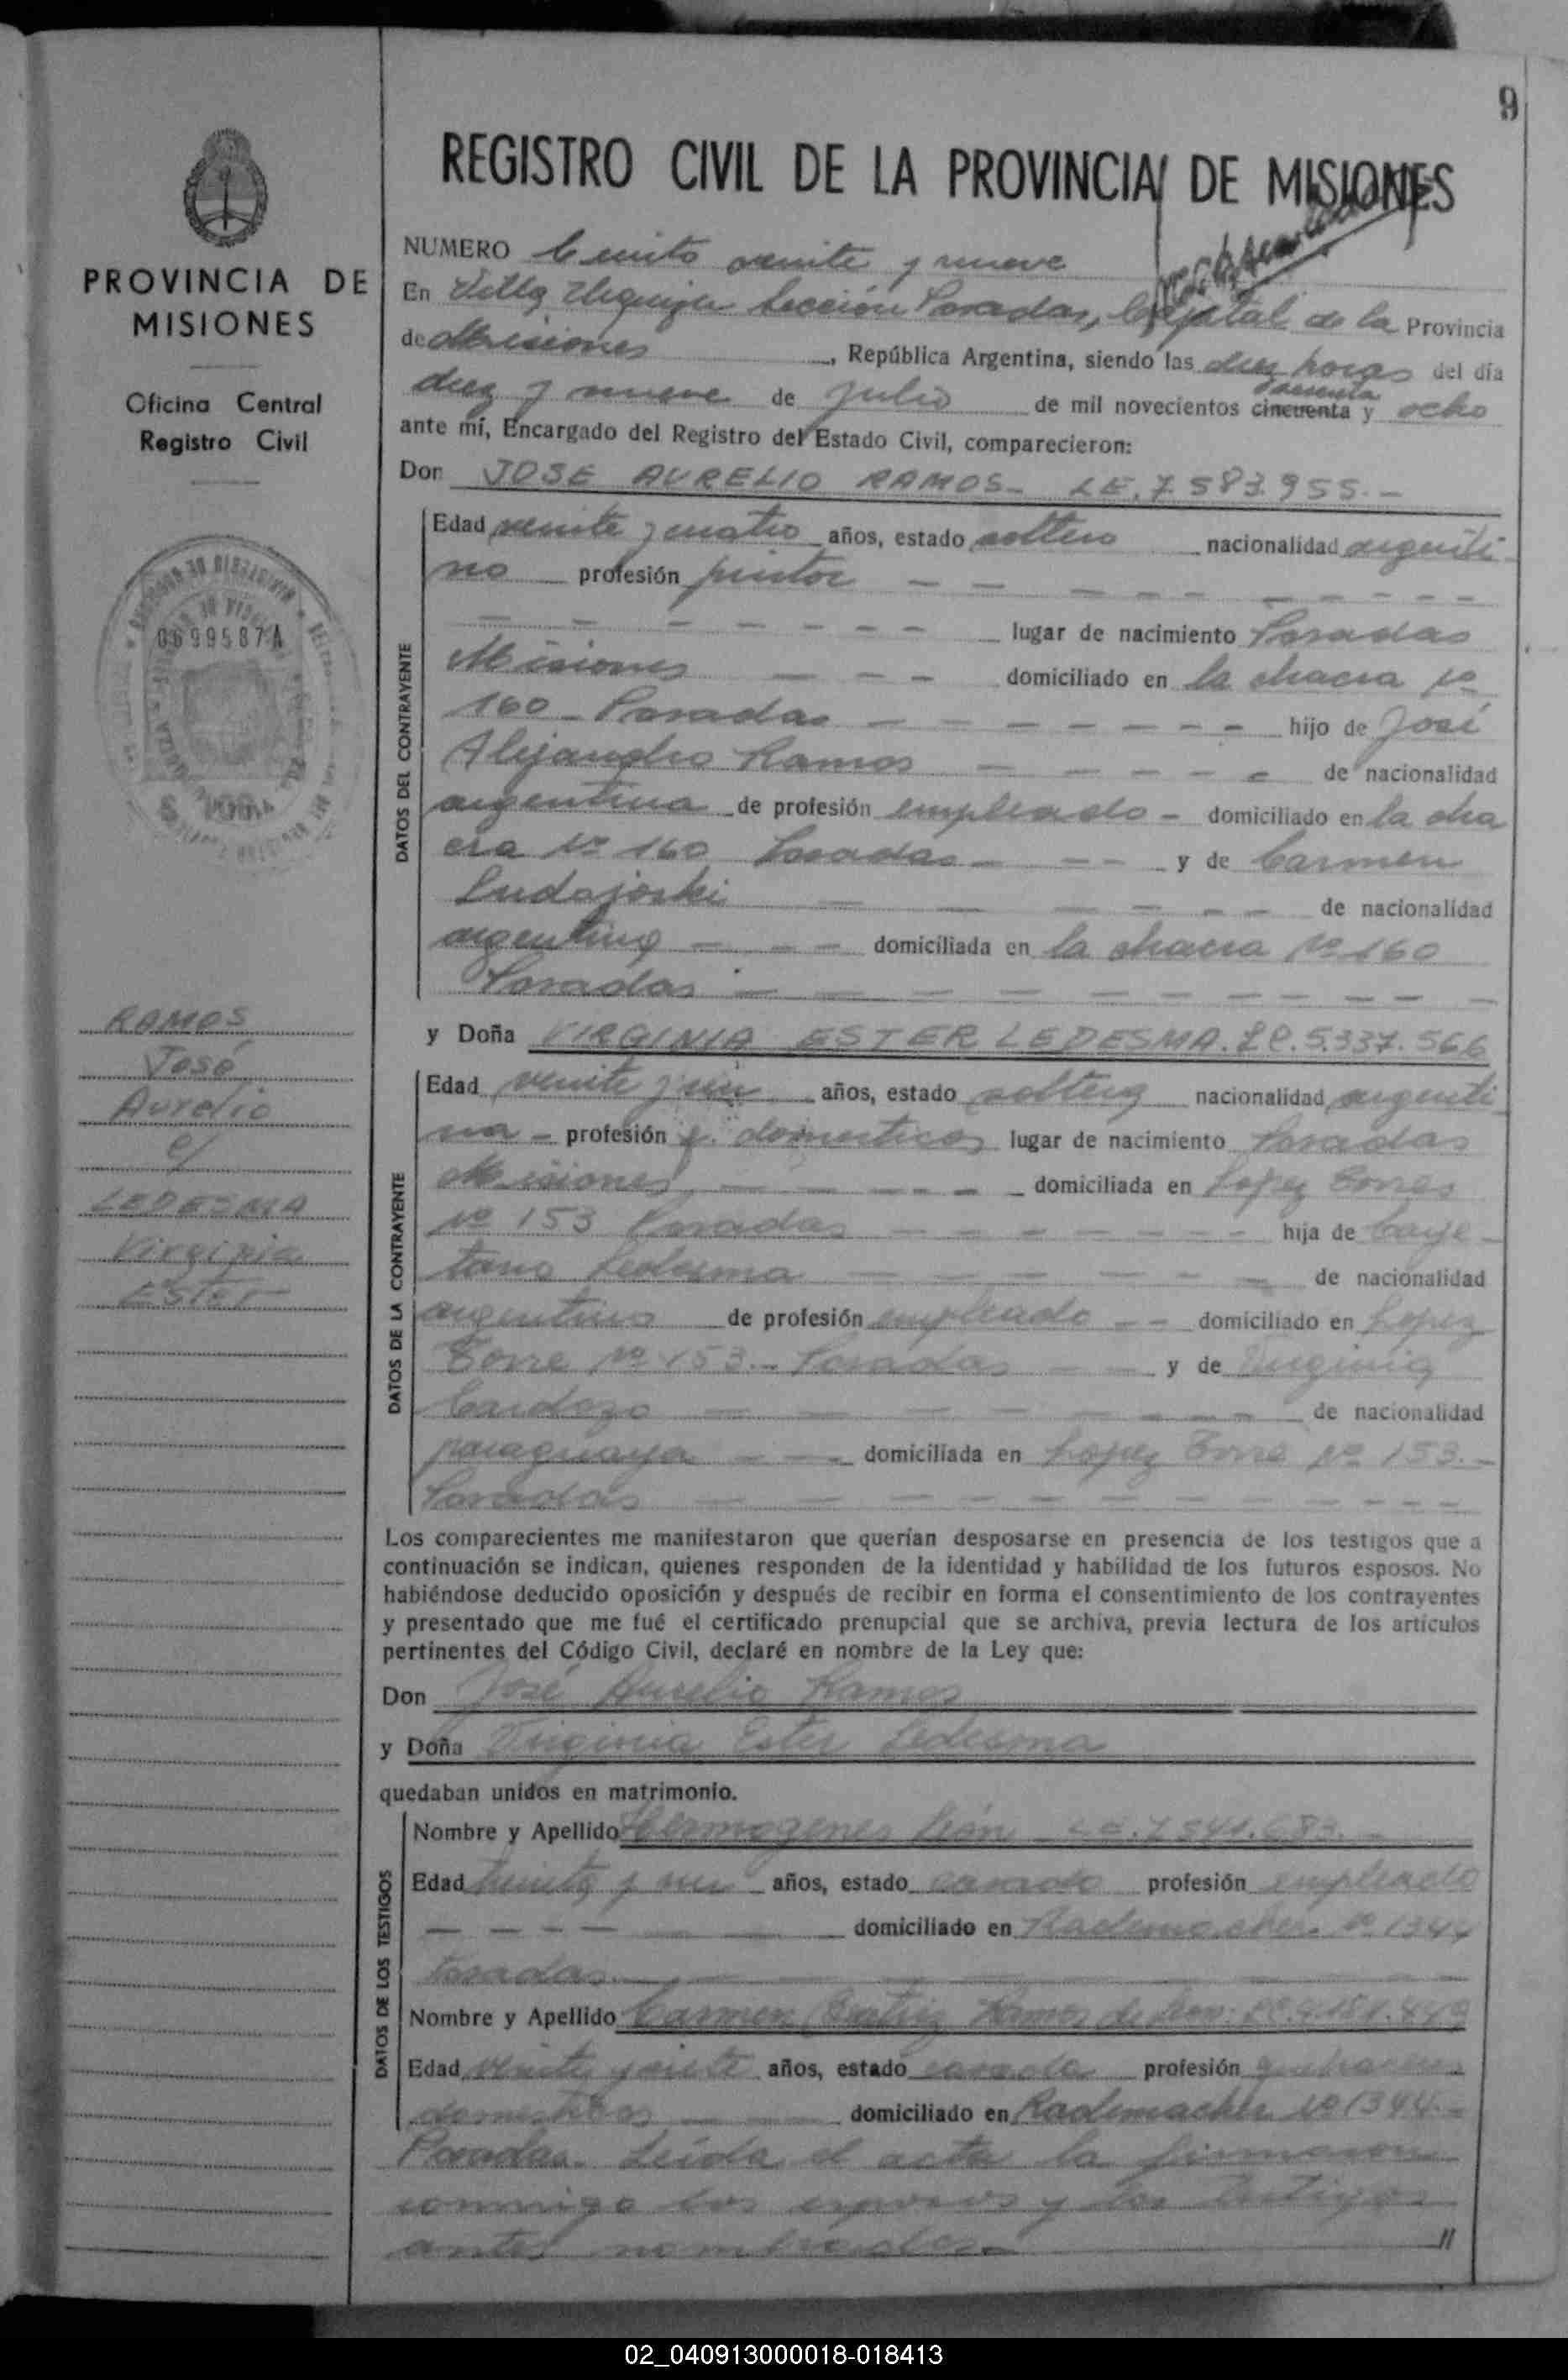 9
REGISTRO CIVIL DE LA PROVINCIA DE MISIONES
PROVINCIA DE
MISIONES
Oficina Central
Registro Civil
0699587A
RAMOS
José
Aurelio
c/
LEDESMA
Virginia
Ester
NUMERO Ciento veinte y nueve
En Villa Urquiza Sección Posadas, Capital de la Provincia
de Misiones, República Argentina, siendo las diez horas del día
sesenta
diez y nueve de julio de mil novecientos cincuenta y ocho
ante mí, Encargado del Registro del Estado Civil, comparecieron:
Don JOSE AURELIO RAMOS - LE. 7.583.955.-
DATOS DEL CONTRAYENTE
Edad veinte y cuatro años, estado soltero nacionalidad argenti
no profesión pintor
lugar de nacimiento Posadas
Misiones domiciliado en la chacra No
160 - Posadas hijo de José
Alejandro Ramos de nacionalidad
argentina de profesión empleado - domiciliado en la cha
cra No 160 Posadas y de Carmen
de nacionalidad
argentina domiciliada en la chacra No 160
Posadas
y Doña VIRGINIA ESTER LEDESMA. LC. 5.337.566
DATOS DE LA CONTRAYENTE
Edad veinte y un años, estado soltera nacionalidad argenti
na - profesión q. domesticos lugar de nacimiento Posadas
Misiones domiciliada en Lopez Torres
No 153 Posadas hija de Caye-
tano Ledesma de nacionalidad
argentino de profesión empleado domiciliado en Lopez
Torre No 153 - Posadas y de Virginia
Cardozo de nacionalidad
paraguaya domiciliada en Lopez Torre No 153.-
Posadas
Los comparecientes me manifestaron que querían desposarse en presencia de los testigos que a
continuación se indican, quienes responden de la identidad y habilidad de los futuros esposos. No
habiéndose deducido oposición y después de recibir en forma el consentimiento de los contrayentes
y presentado que me fué el certificado prenupcial que se archiva, previa lectura de los artículos
pertinentes del Código Civil, declaré en nombre de la Ley que:
Don José Aurelio Ramos
y Doña Virginia Ester Ledesma
quedaban unidos en matrimonio.
DATOS DE LOS TESTIGOS
Nombre y Apellido Hermogenes
Edad treinta y un años, estado casado profesión empleado
domiciliado en Rademacher No 1344
Posadas
Nombre y Apellido Carmen Beatriz Ramos de
Edad veinte y siete años, estado casada profesión quehaceres
domesticos domiciliado en Rademacher No 1344 -
Posadas. Leida el acta la firmaron
conmigo los esposos y los testigos
antes nombrados.- //
02_040913000018-018413